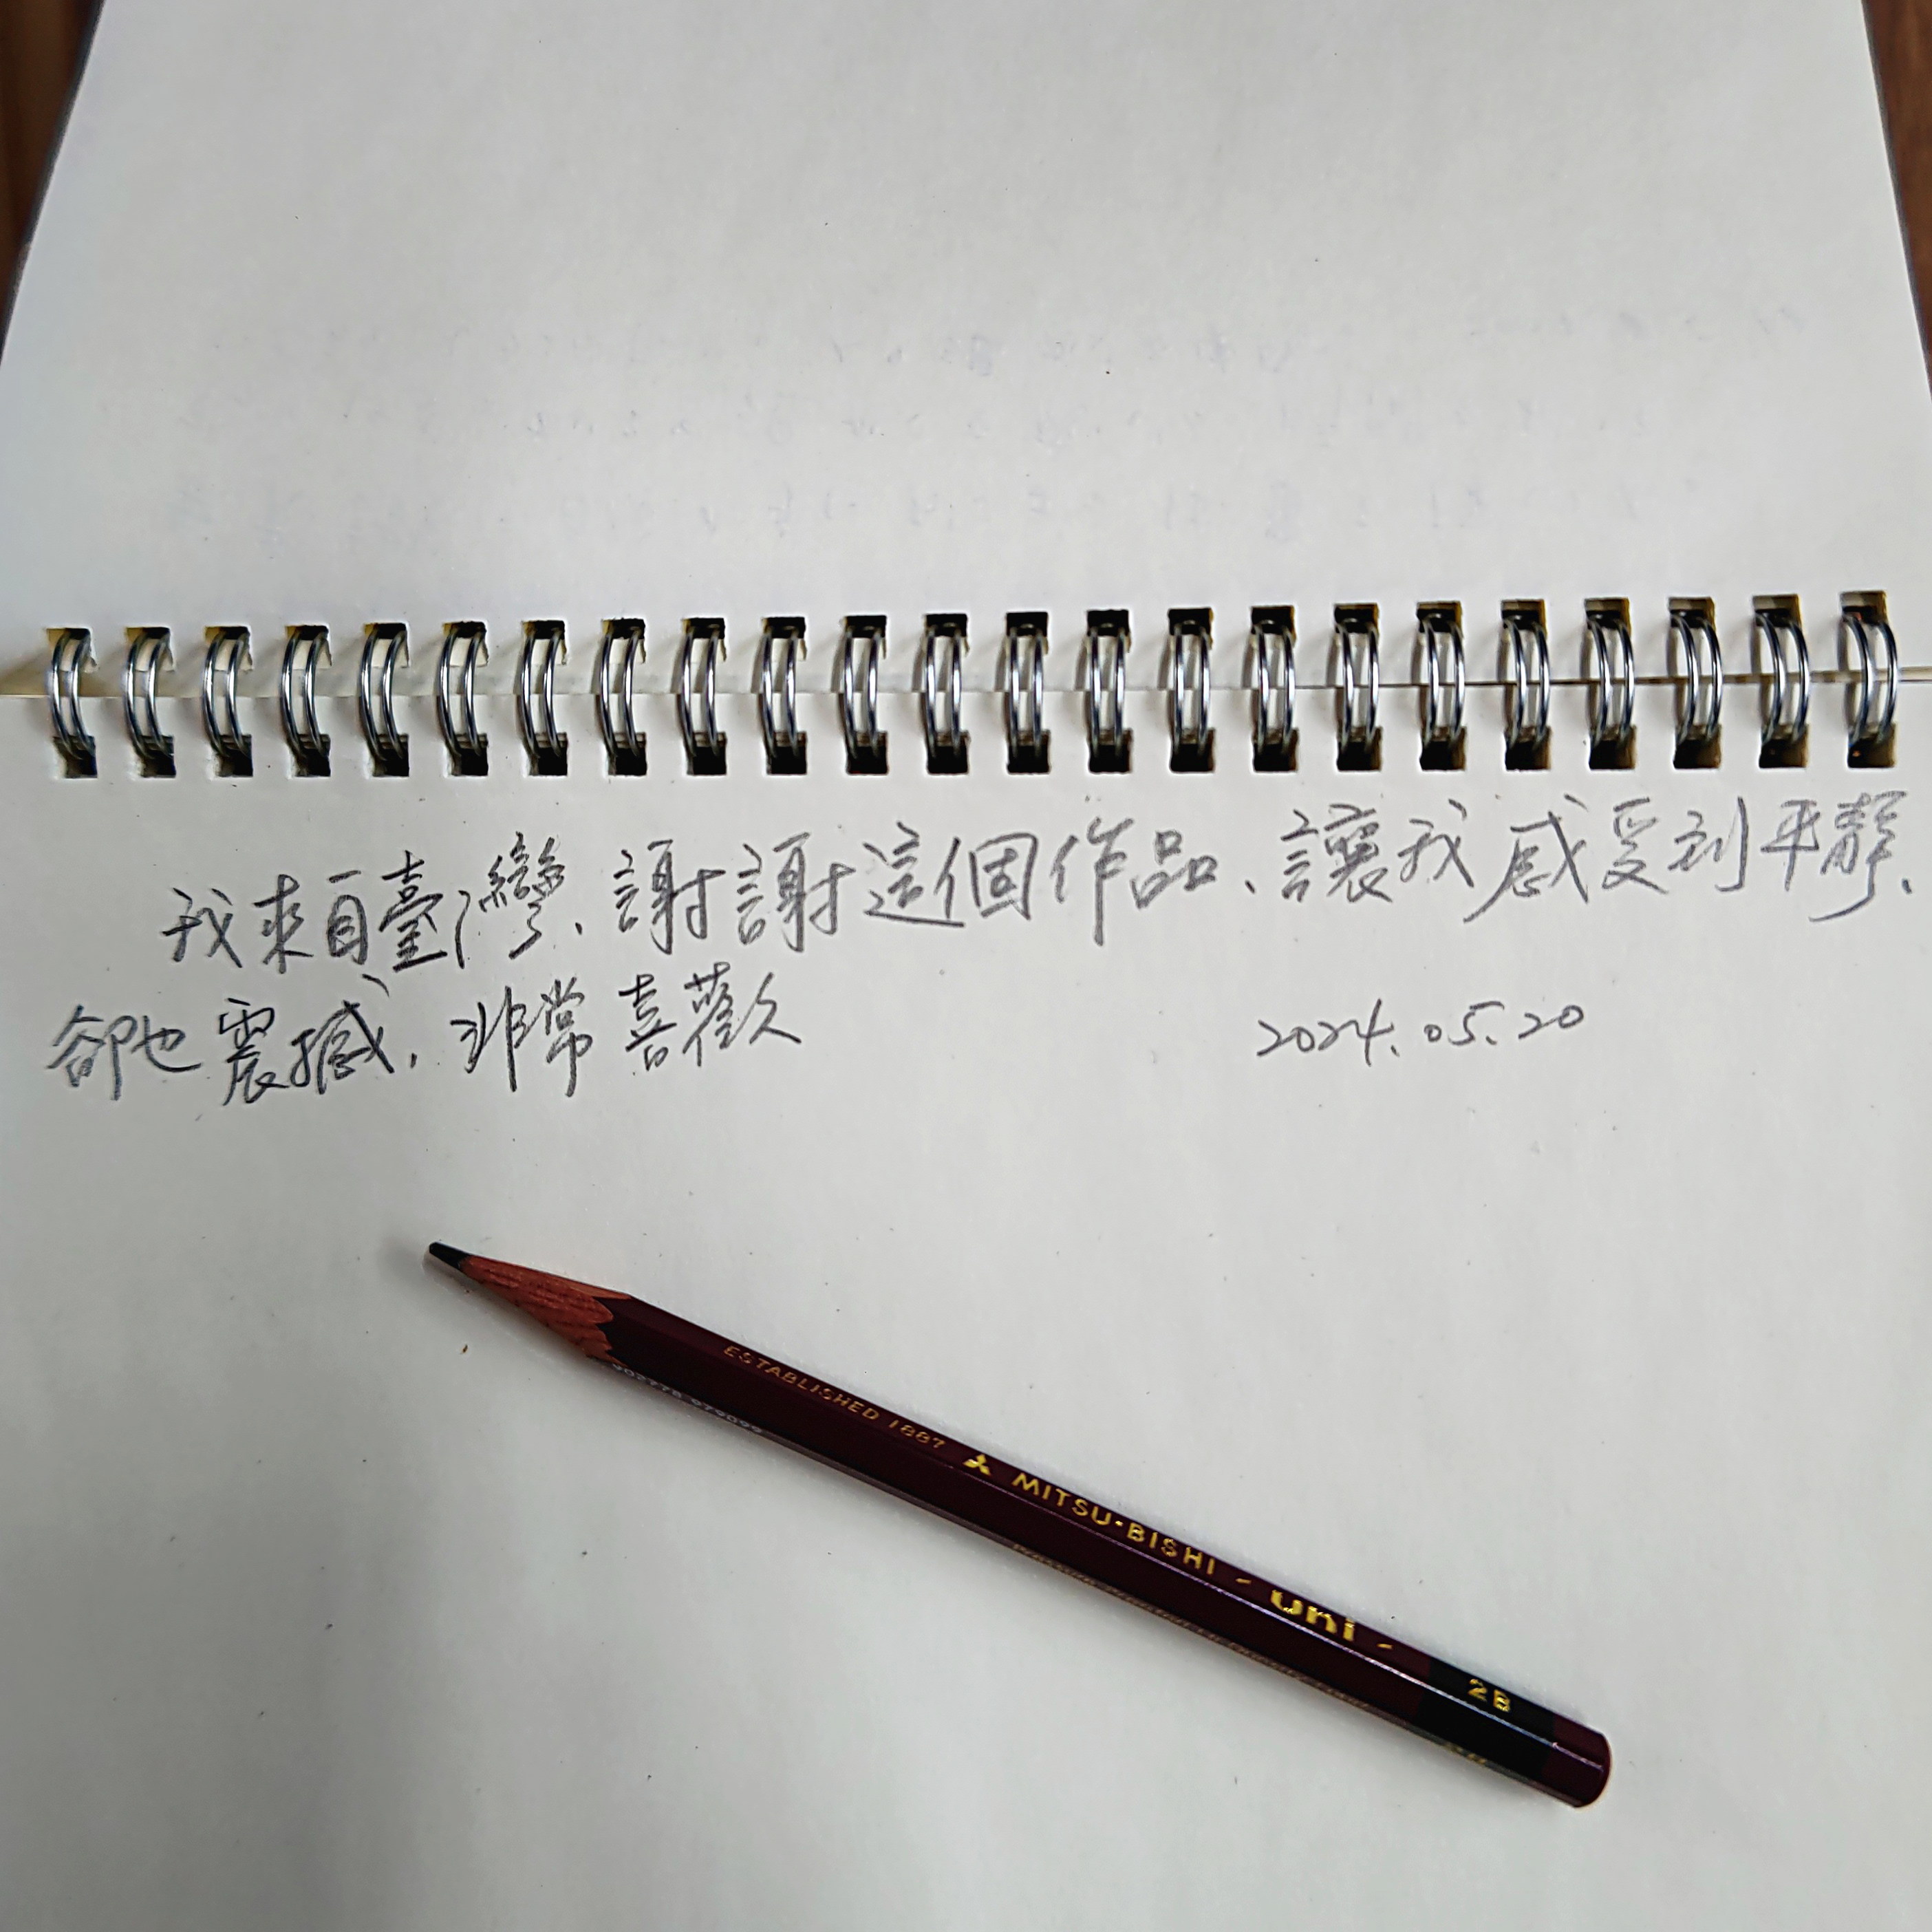 我來自臺灣、謝謝這個作品、讓我感受到平靜、
卻也震撼，非常喜歡
2024.05.20
ESTABLISHED 1887 MITSU-BISHI - uni - 2B